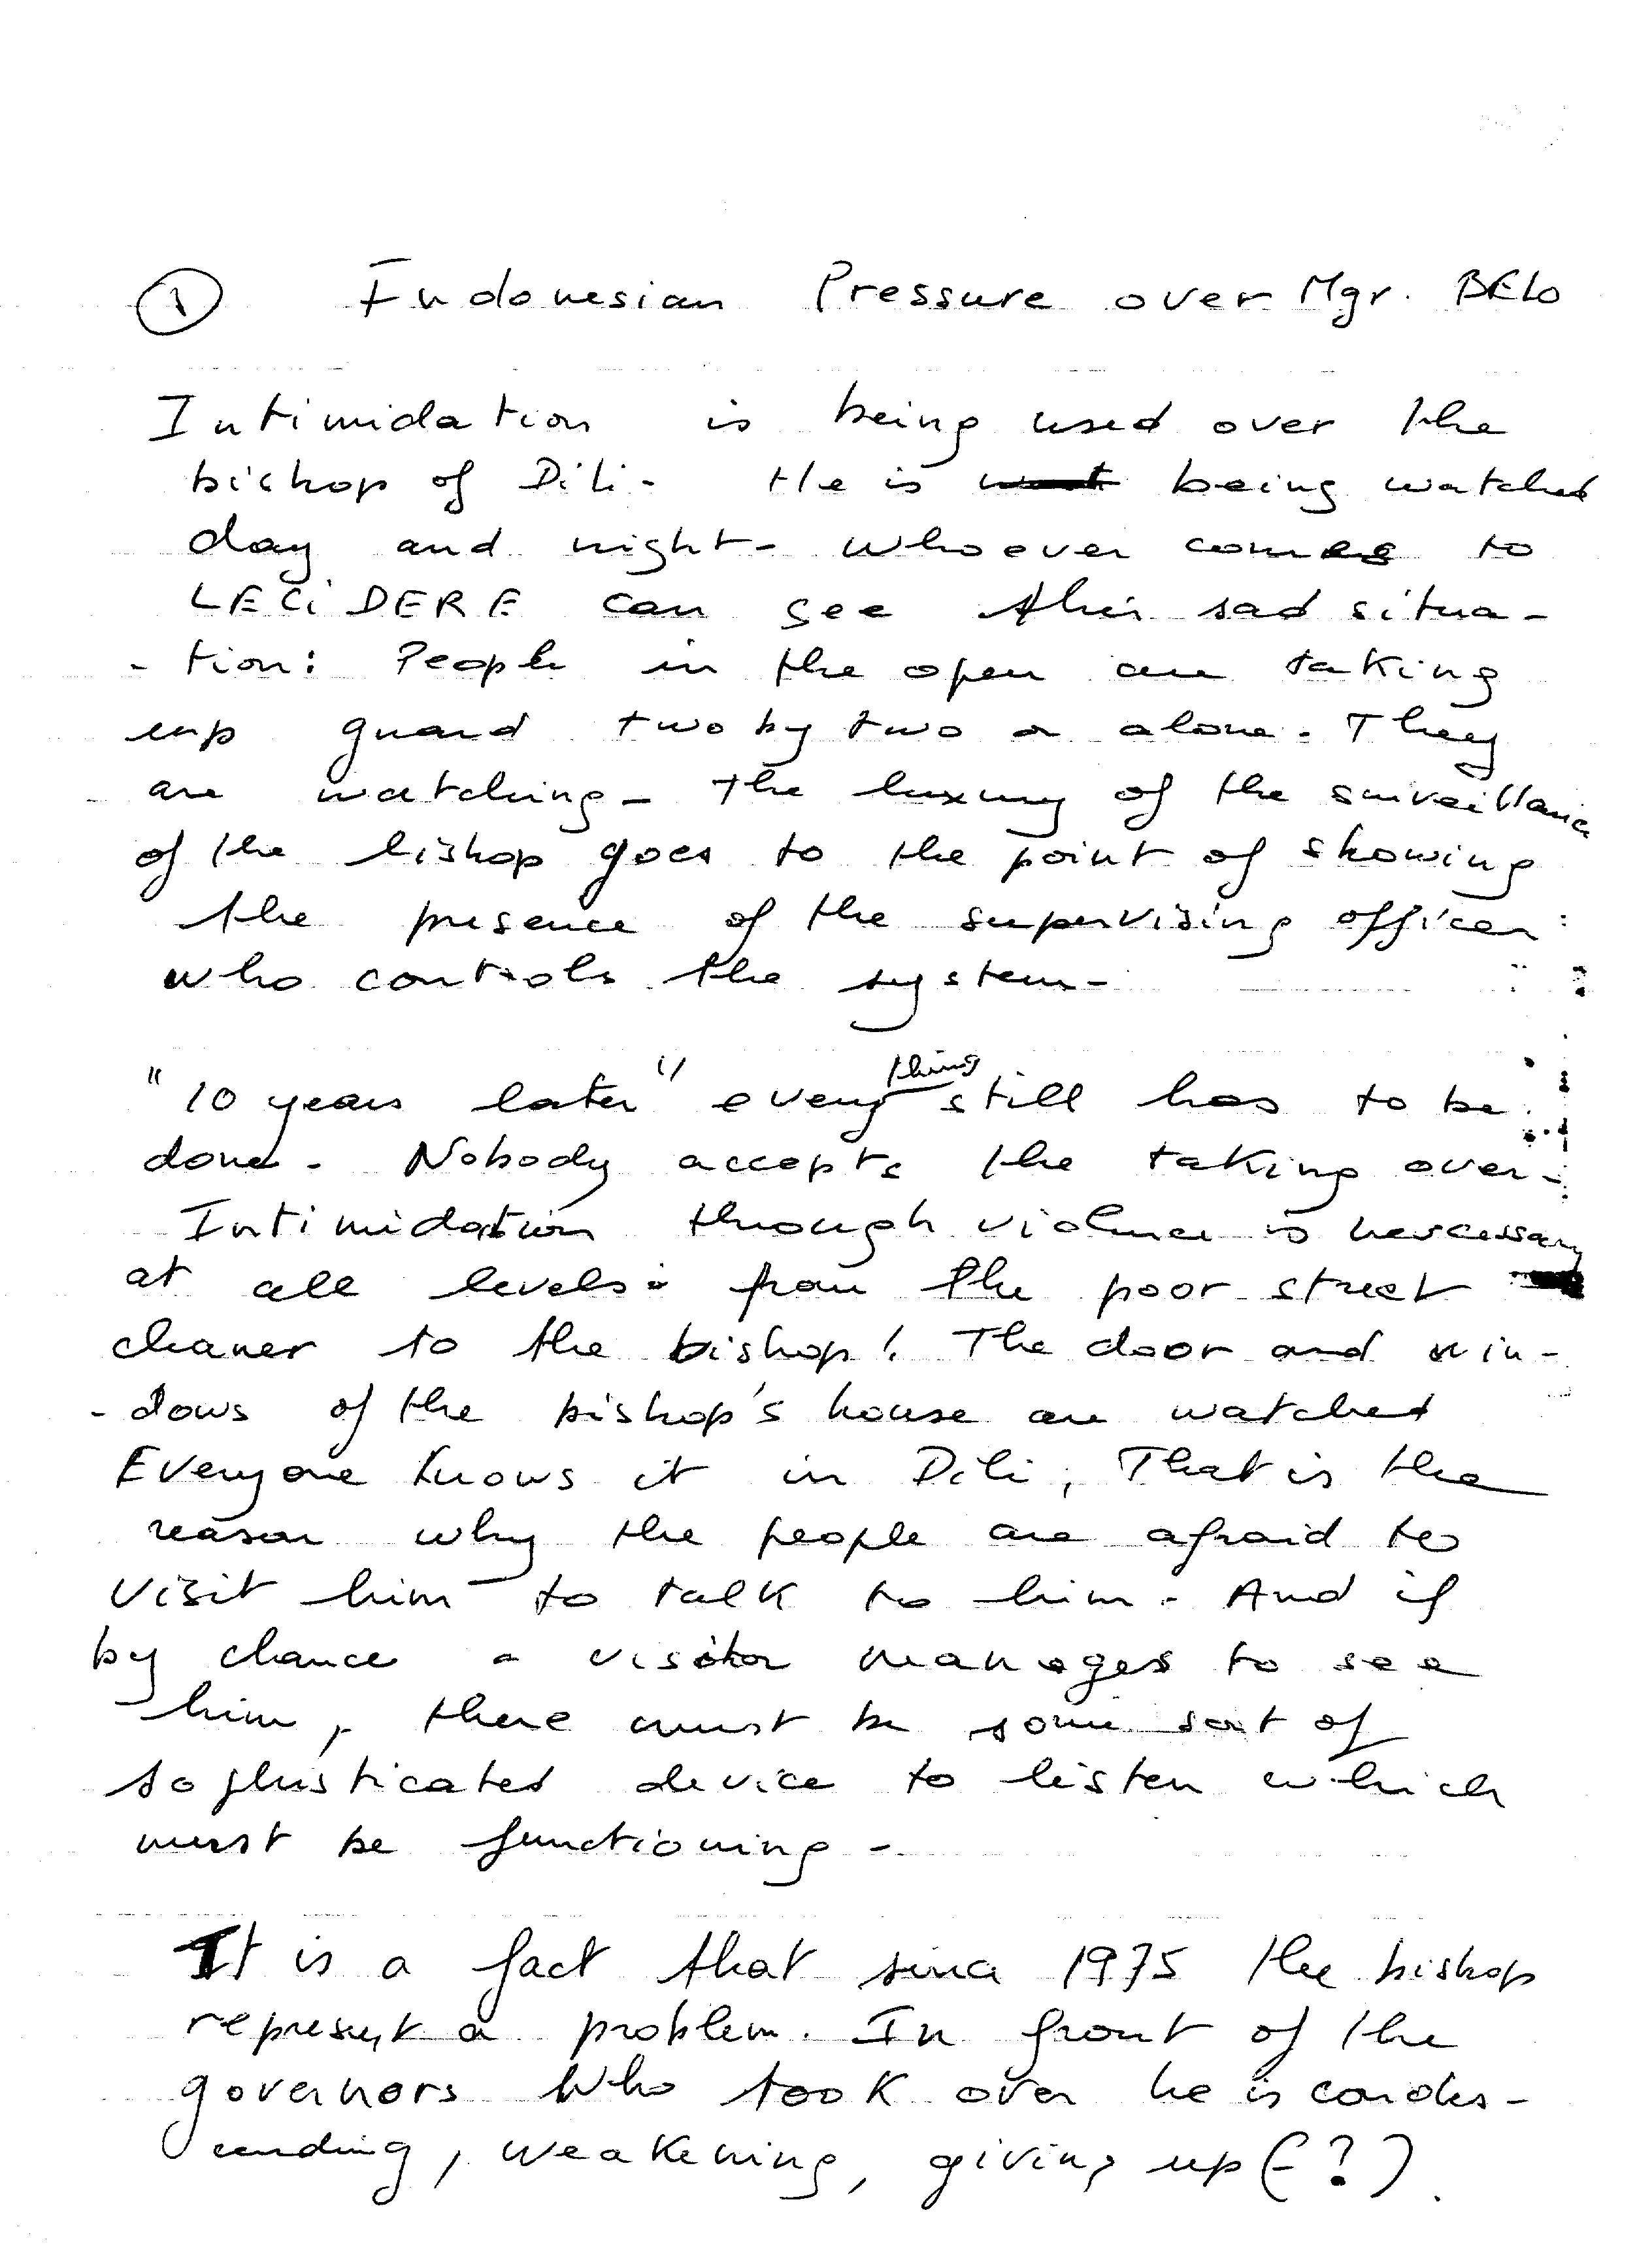 ① Indonesian Pressure over Mgr. BELO
Intimidation is being used over the
bishop of Dili - He is being watched
day and night - whoever comes to
LECIDERE can see this sad situa-
- tion: People in the open are taking
up guard two by two or alone. They
are watching - The luxury of the surveillance
of the bishop goes to the point of showing
the presence of the supervising officer
who controls the system -
"10 years later" everything still has to be
done. Nobody accepts the taking over -
Intimidation through violence is nercessary
at all levels: from the poor street
cleaner to the bishop! The door and win-
- dows of the bishop's house are watched
Everyone knows it in Dili, That is the
reason why the people are afraid to
visit him to talk to him. And if
by chance a visitor manages to see
him, there must be some sort of
sophisticated device to listen which
must be functioning -
It is a fact that since 1975 the bishop
represent a problem. In front of the
governors who took over he is condes-
cending, weakening, giving up (- ?).